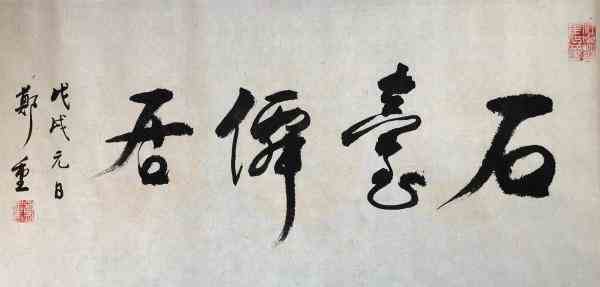 石臺僊居
戊戌元日
鄭重